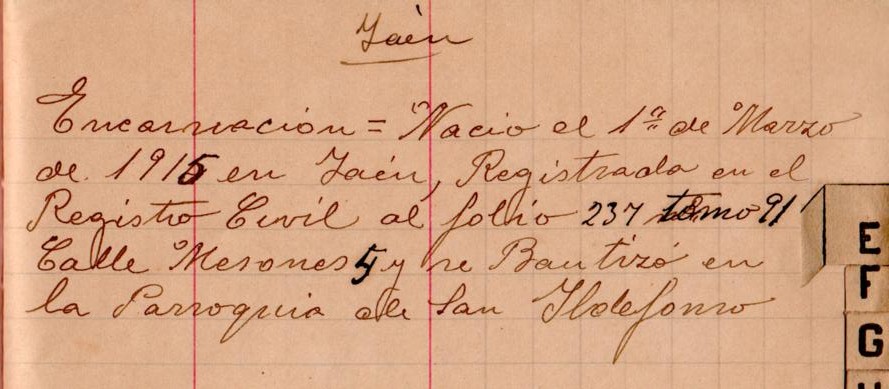 Jaén
Encarnación = Nacio el 1º de Marzo
de 1915 en Jaén, Registrada en el
Registro Civil al folio 237 tomo 91
Calle Mesones 5 y se Bautizó en
la Parroquia de San Ildefonso
E
F
G